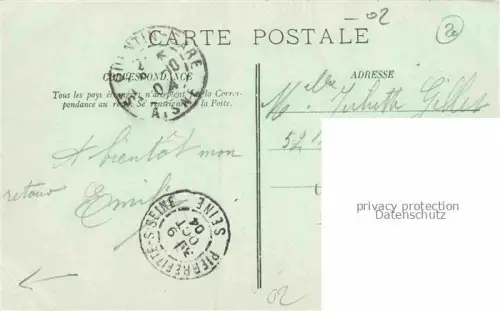 -02
2e
CARTE POSTALE
CORRESPONDANCE
ADRESSE
Tous les pays étrangers n'acceptent pas la Corres-
pondance au recto. Se renseigner à la Poste.
Mlle Juliette Gilles
52
A bientôt mon
retour
Emile
ST QUENTIN GARE
AISNE
PIERREFITTE-S-SEINE
SEINE
04
privacy protection
Datenschutz
02